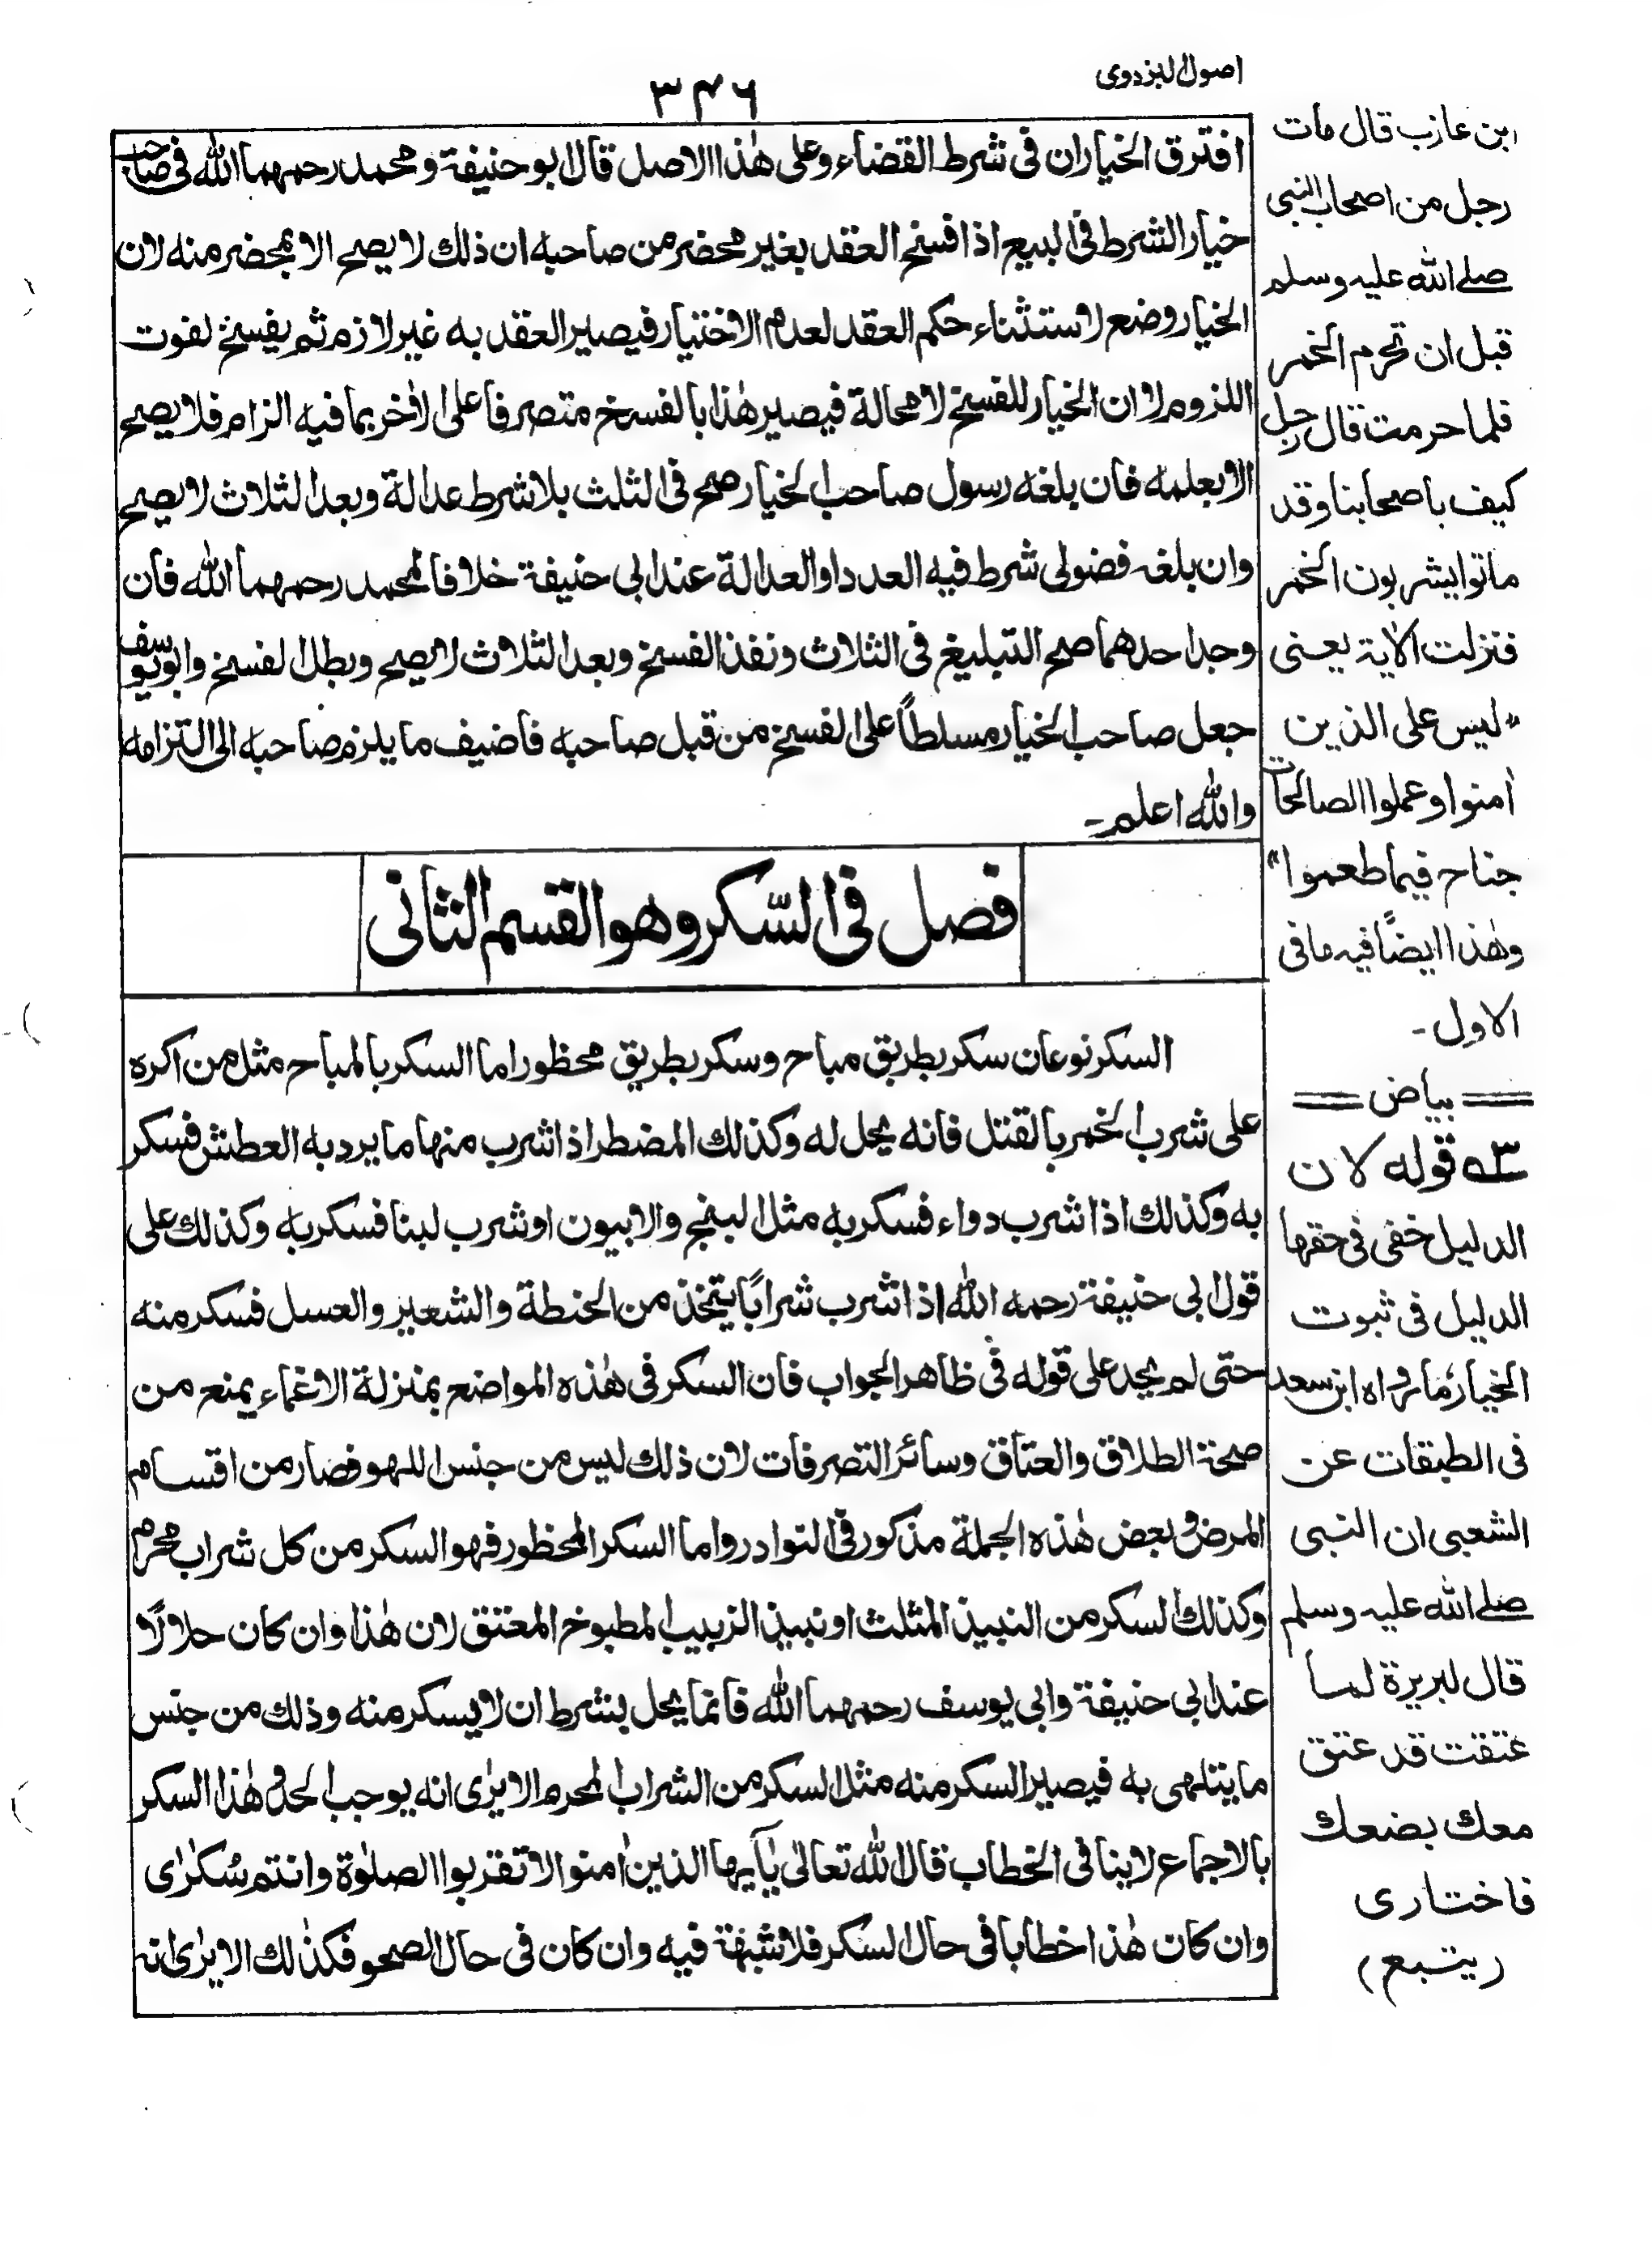 اصول البزدوی
۳۴۶
افترق الخياران فى شرط القضاء وعلى هٰذا الاصل قال ابو حنيفة ومحمد رحمهما الله فى صاحب
خيار الشرط فى البيع اذا فسخ العقد بغير محضر من صاحبه ان ذلك لا يصح الا بمحضر منه لان
الخيار وضع لاستثناء حكم العقد لعدم الاختيار فيصير العقد به غير لازم ثم يفسخ لفوت
اللزوم لا ان الخيار للفسخ لا محالة فيصير هٰذا بالفسخ متصرفا على الاٰخر بما فيه الزام فلا يصح
الا بعلمه فان بلغه رسول صاحب الخيار صح فى الثلث بلا شرط عدالة وبعد الثلاث لا يصح
وان بلغه فضولى شرط فيه العدد او العدالة عند ابى حنيفة خلافا لمحمد رحمهما الله فان
وجد احدهما صح التبليغ فى الثلاث ونفذ الفسخ وبعد الثلاث لا يصح وبطل الفسخ وابو يوسف
جعل صاحب الخيار مسلطاً على الفسخ من قبل صاحبه فاضيف ما يلزم صاحبه الى التزامه
والله اعلم۔
فصل فى السّكر وهو القسم الثانى
السكر نوعان سكر بطريق مباح وسكر بطريق محظور اما السكر بالمباح مثل من اكره
على شرب الخمر بالقتل فانه يحل له وكذلك المضطر اذا شرب منها ما يرد به العطش فسكر
به وكذلك اذا شرب دواء فسكر به مثل البنج والابيون او شرب لبنا فسكر به وكذلك على
قول ابى حنيفة رحمه الله اذا شرب شرابًا يتخذ من الحنطة والشعير والعسل فسكر منه
حتى لم يحد على قوله فى ظاهر الجواب فان السكر فى هٰذه المواضع بمنزلة الاغماء يمنع من
صحة الطلاق والعتاق وسائر التصرفات لان ذلك ليس من جنس اللهو فصار من اقسام
المرض وبعض هٰذه الجملة مذكور فى النوادر واما السكر المحظور فهو السكر من كل شراب محرم
وكذلك السكر من النبيذ المثلث او نبيذ الزبيب المطبوخ المعتق لان هٰذا وان كان حلالًا
عند ابى حنيفة وابى يوسف رحمهما الله فانما يحل بشرط ان لا يسكر منه وذلك من جنس
ما يتلهى به فيصير السكر منه مثل السكر من الشراب المحرم الا يرٰى انه يوجب الحد وهٰذا السكر
بالاجماع لا ينا فى الخطاب قال الله تعالىٰ يٰاَيها الذين اٰمنوا لا تقربوا الصلوٰة وانتم سُكرٰى
وان كان هٰذا خطابا فى حال السكر فلا شبهة فيه وان كان فى حال الصحو فكذٰلك الا يرٰى انه
ابن عازب قال مات
رجل من اصحاب النبى
صلے الله عليه وسلم
قبل ان تحرم الخمر
فلما حرمت قال رجل
كيف باصحابنا وقد
ماتوا يشربون الخمر
فنزلت الاٰية يعنى
"ليس على الذين
اٰمنوا وعملوا الصالحات
جناح فيما طعموا"
وهٰذا ايضًا فيه ما فى
الاول۔
== بياض ==
۳ے قوله لان
الدليل خفى فى حقها
الدليل فى ثبوت
الخيار ما رواه ابن سعد
فى الطبقات عن
الشعبى ان النبى
صلے الله عليه وسلم
قال لبريرة لما
عتقت قد عتق
معك بضعك
فاختارى
(يتبع)